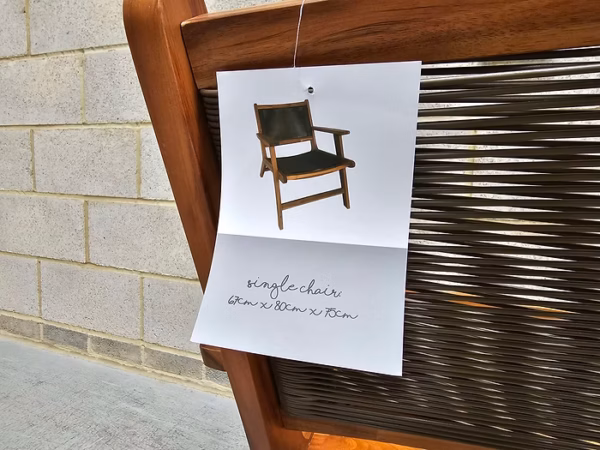 single chair.
67cm x 80cm x 75cm